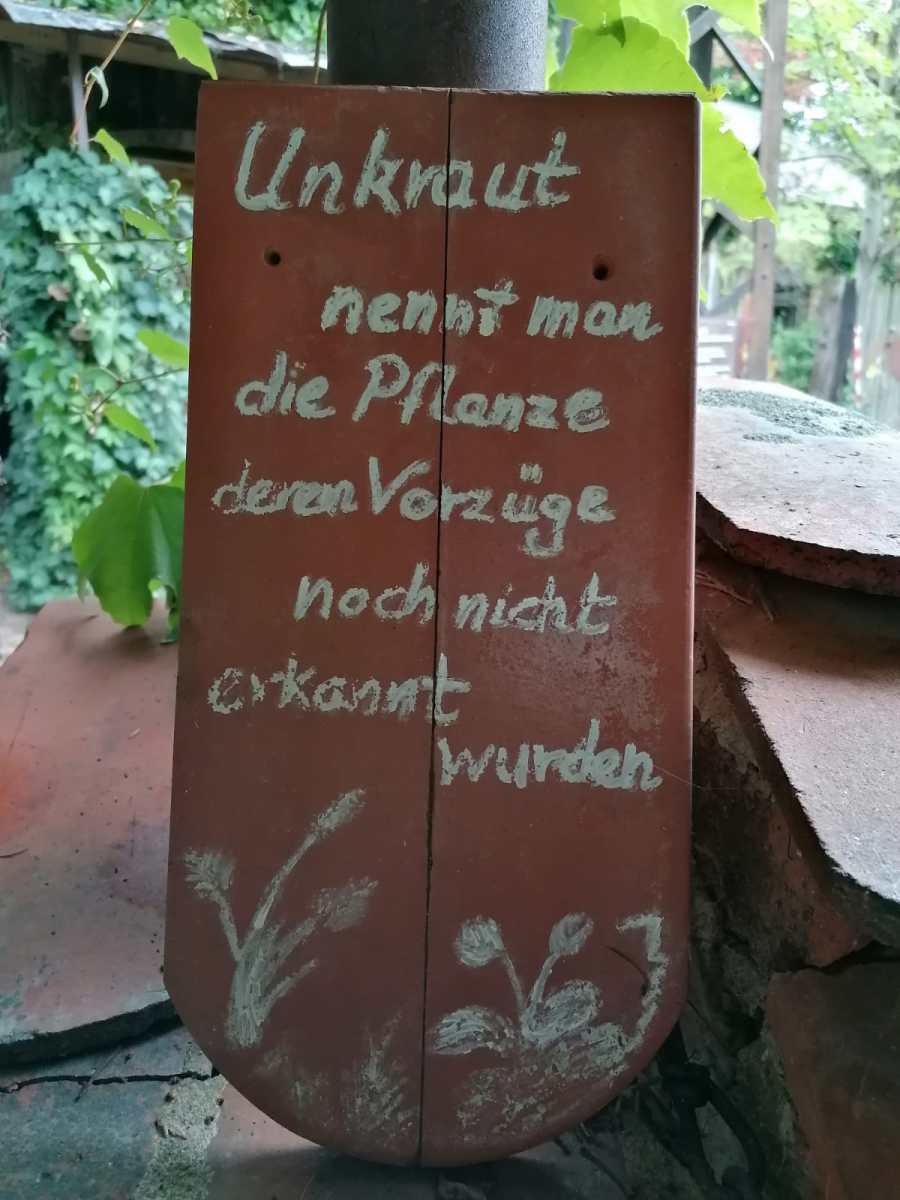 Unkraut
nennt man
die Pflanze
deren Vorzüge
noch nicht
erkannt
wurden